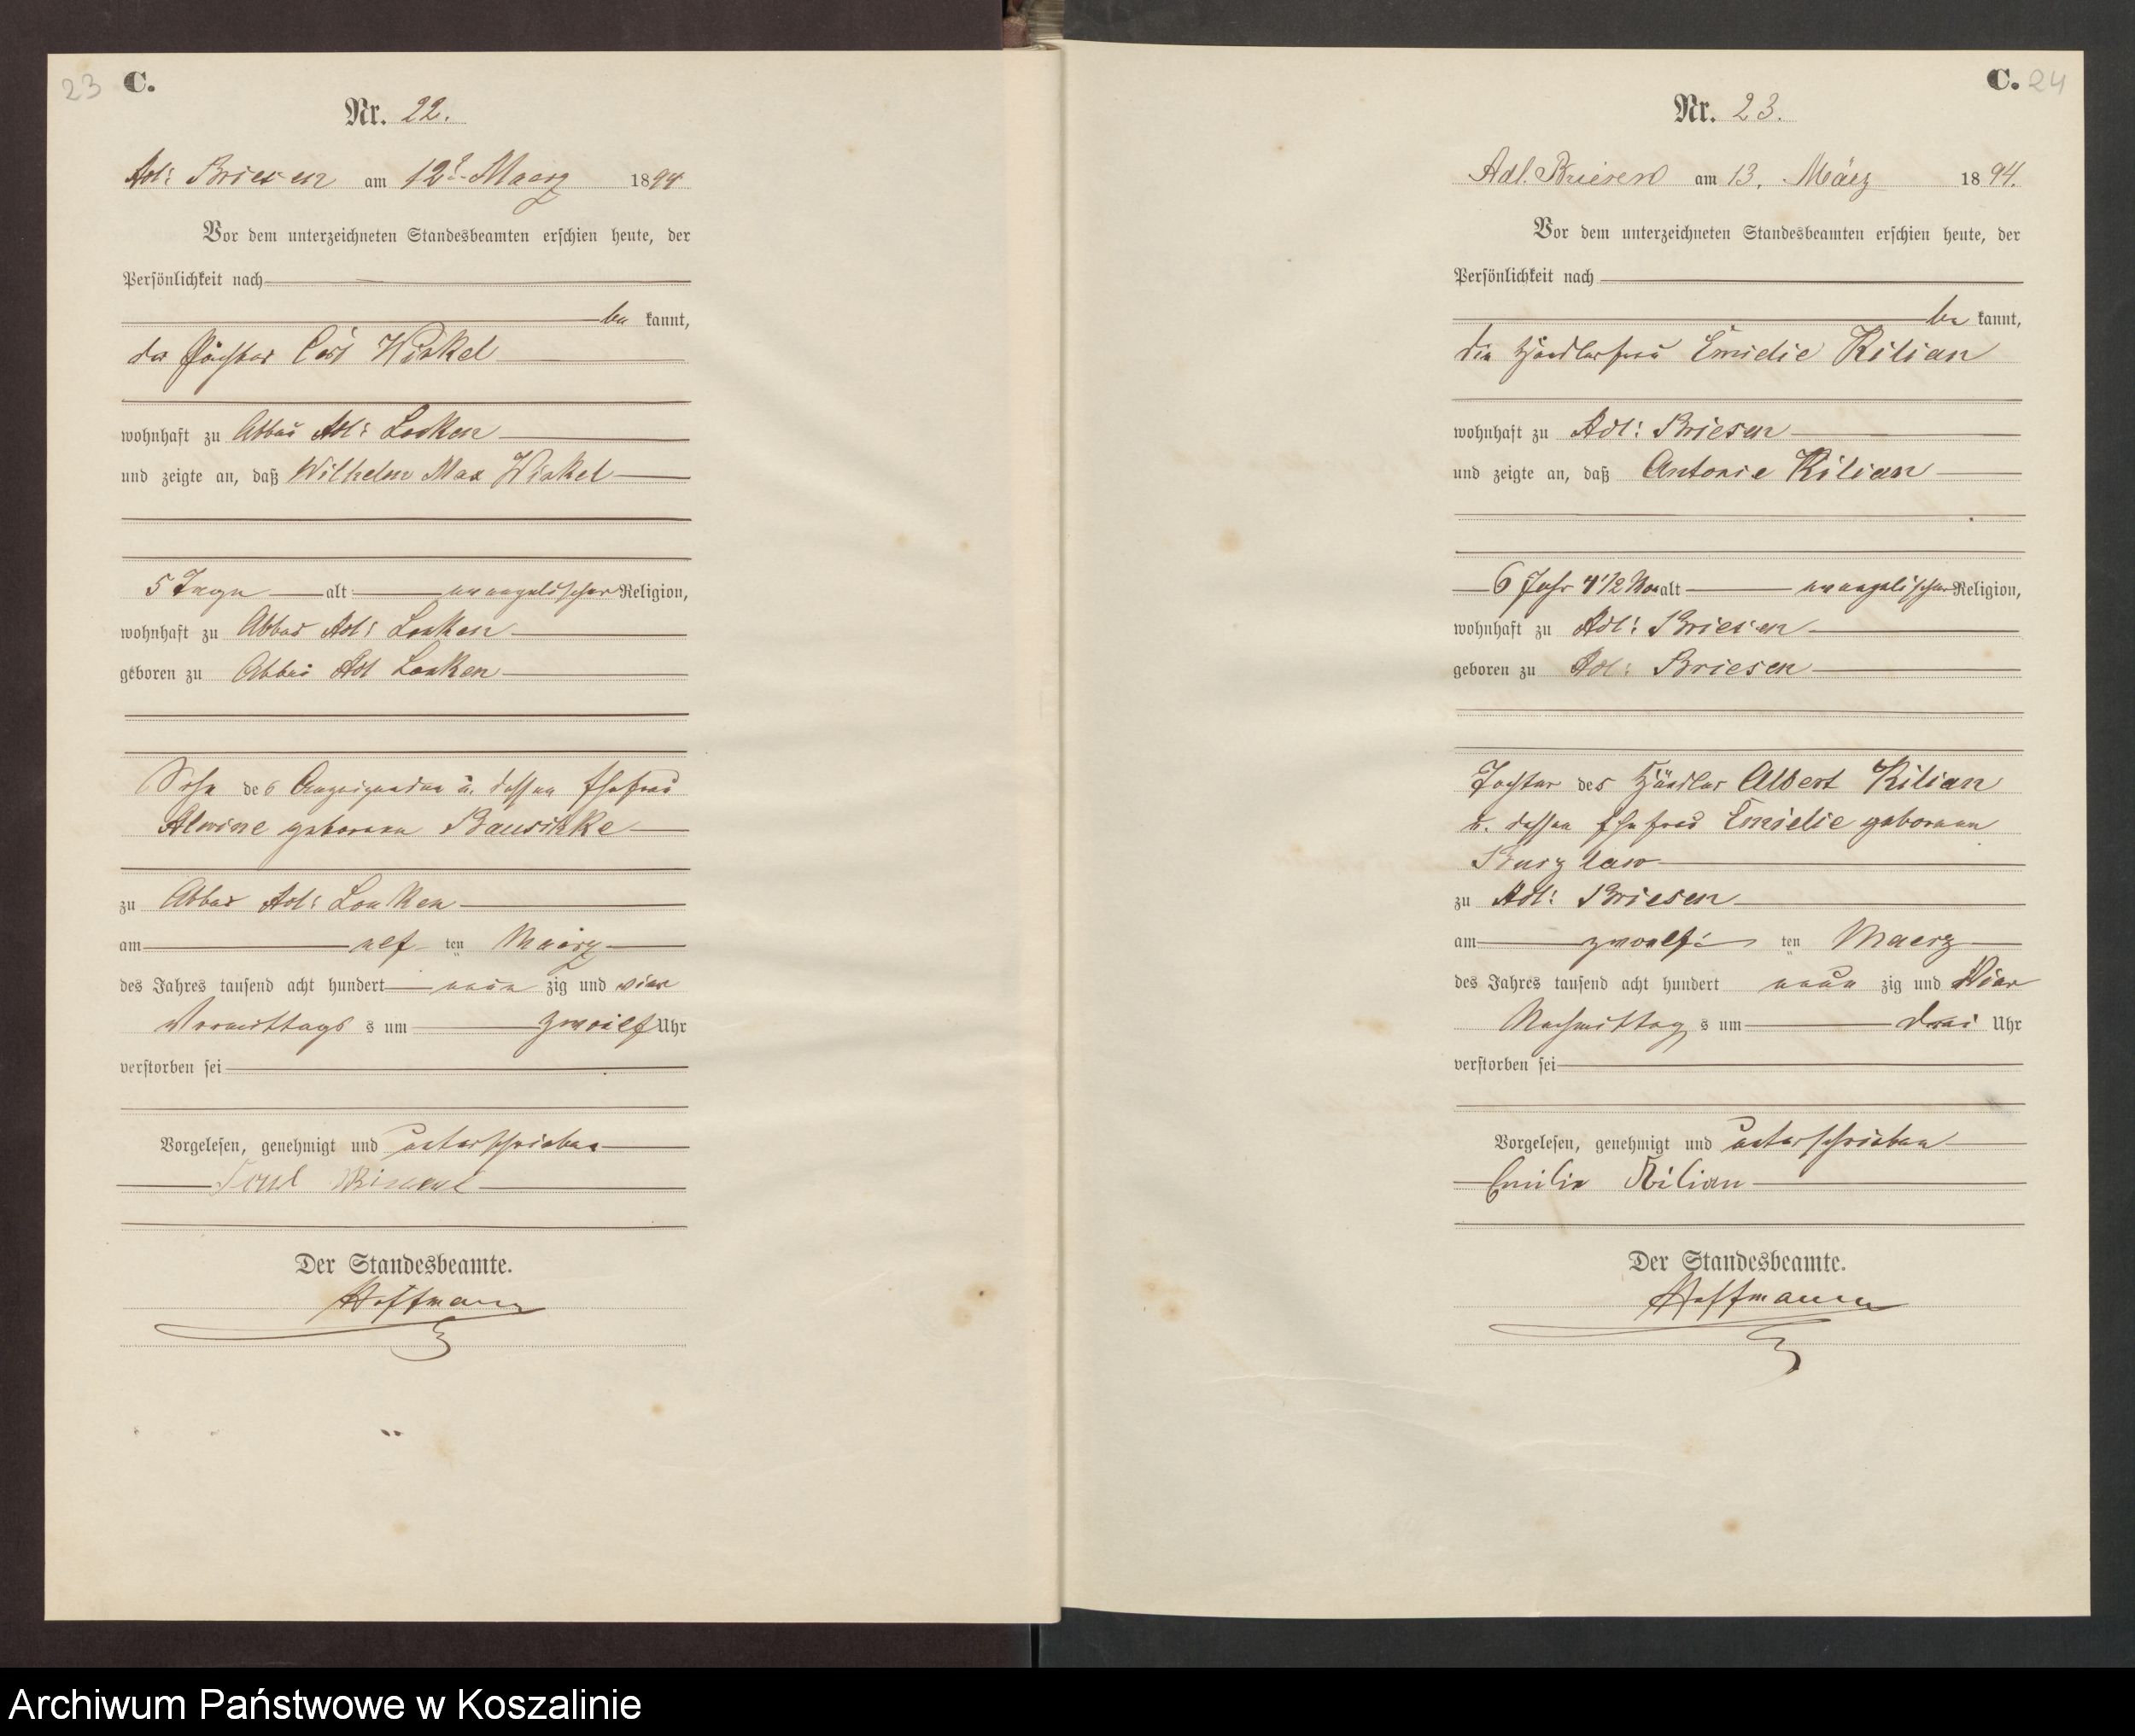 23 C.
Nr. 22.
Adl: Briesen am 12t Maerz 1894
Vor dem unterzeichneten Standesbeamten erschien heute, der
Persönlichkeit nach
be kannt,
der Pächter Carl Winkel
wohnhaft zu Abbau Adl:
und zeigte an, daß Wilhelm Max Winkel
5 Tage alt evangelischer Religion,
wohnhaft zu Abbau Adl:
geboren zu Abbau Adl
Sohn des Anzeigenden u. dessen Ehefrau
Alwine geborenen
zu Abbau Adl:
am elf ten Maerz
des Jahres tausend acht hundert neun zig und vier
Vormittags s um zwoelf Uhr
verstorben sei
Vorgelesen, genehmigt und unterschrieben
Der Standesbeamte.
Hoffmann
C. 24
Nr. 23.
Adl. Briesen am 13. März 1894.
Vor dem unterzeichneten Standesbeamten erschien heute, der
Persönlichkeit nach
be kannt,
die Händlerfrau Emielie Kilian
wohnhaft zu Adl: Briesen
und zeigte an, daß Antonie Kilian
6 Jahr 4 1/2 Mon alt evangelischer Religion,
wohnhaft zu Adl: Briesen
geboren zu Adl: Briesen
Tochter des Händler Albert Kilian
u. dessen Ehefrau Emielie geborenen
zu Adl: Briesen
am zwoelf ten Maerz
des Jahres tausend acht hundert neun zig und Vier
Nachmittag s um drei Uhr
verstorben sei
Vorgelesen, genehmigt und unterschrieben
Emilie Kilian
Der Standesbeamte.
Hoffmann
Archiwum Państwowe w Koszalinie